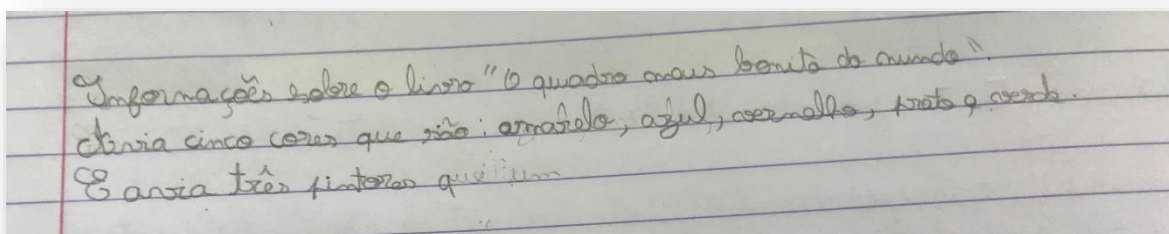 Informações sobre o livro "O quadro mais bonito do mundo".
Avia cinco cores que são: amarelo, azul, vermelho, preto e verde.
E avia três pintores que um